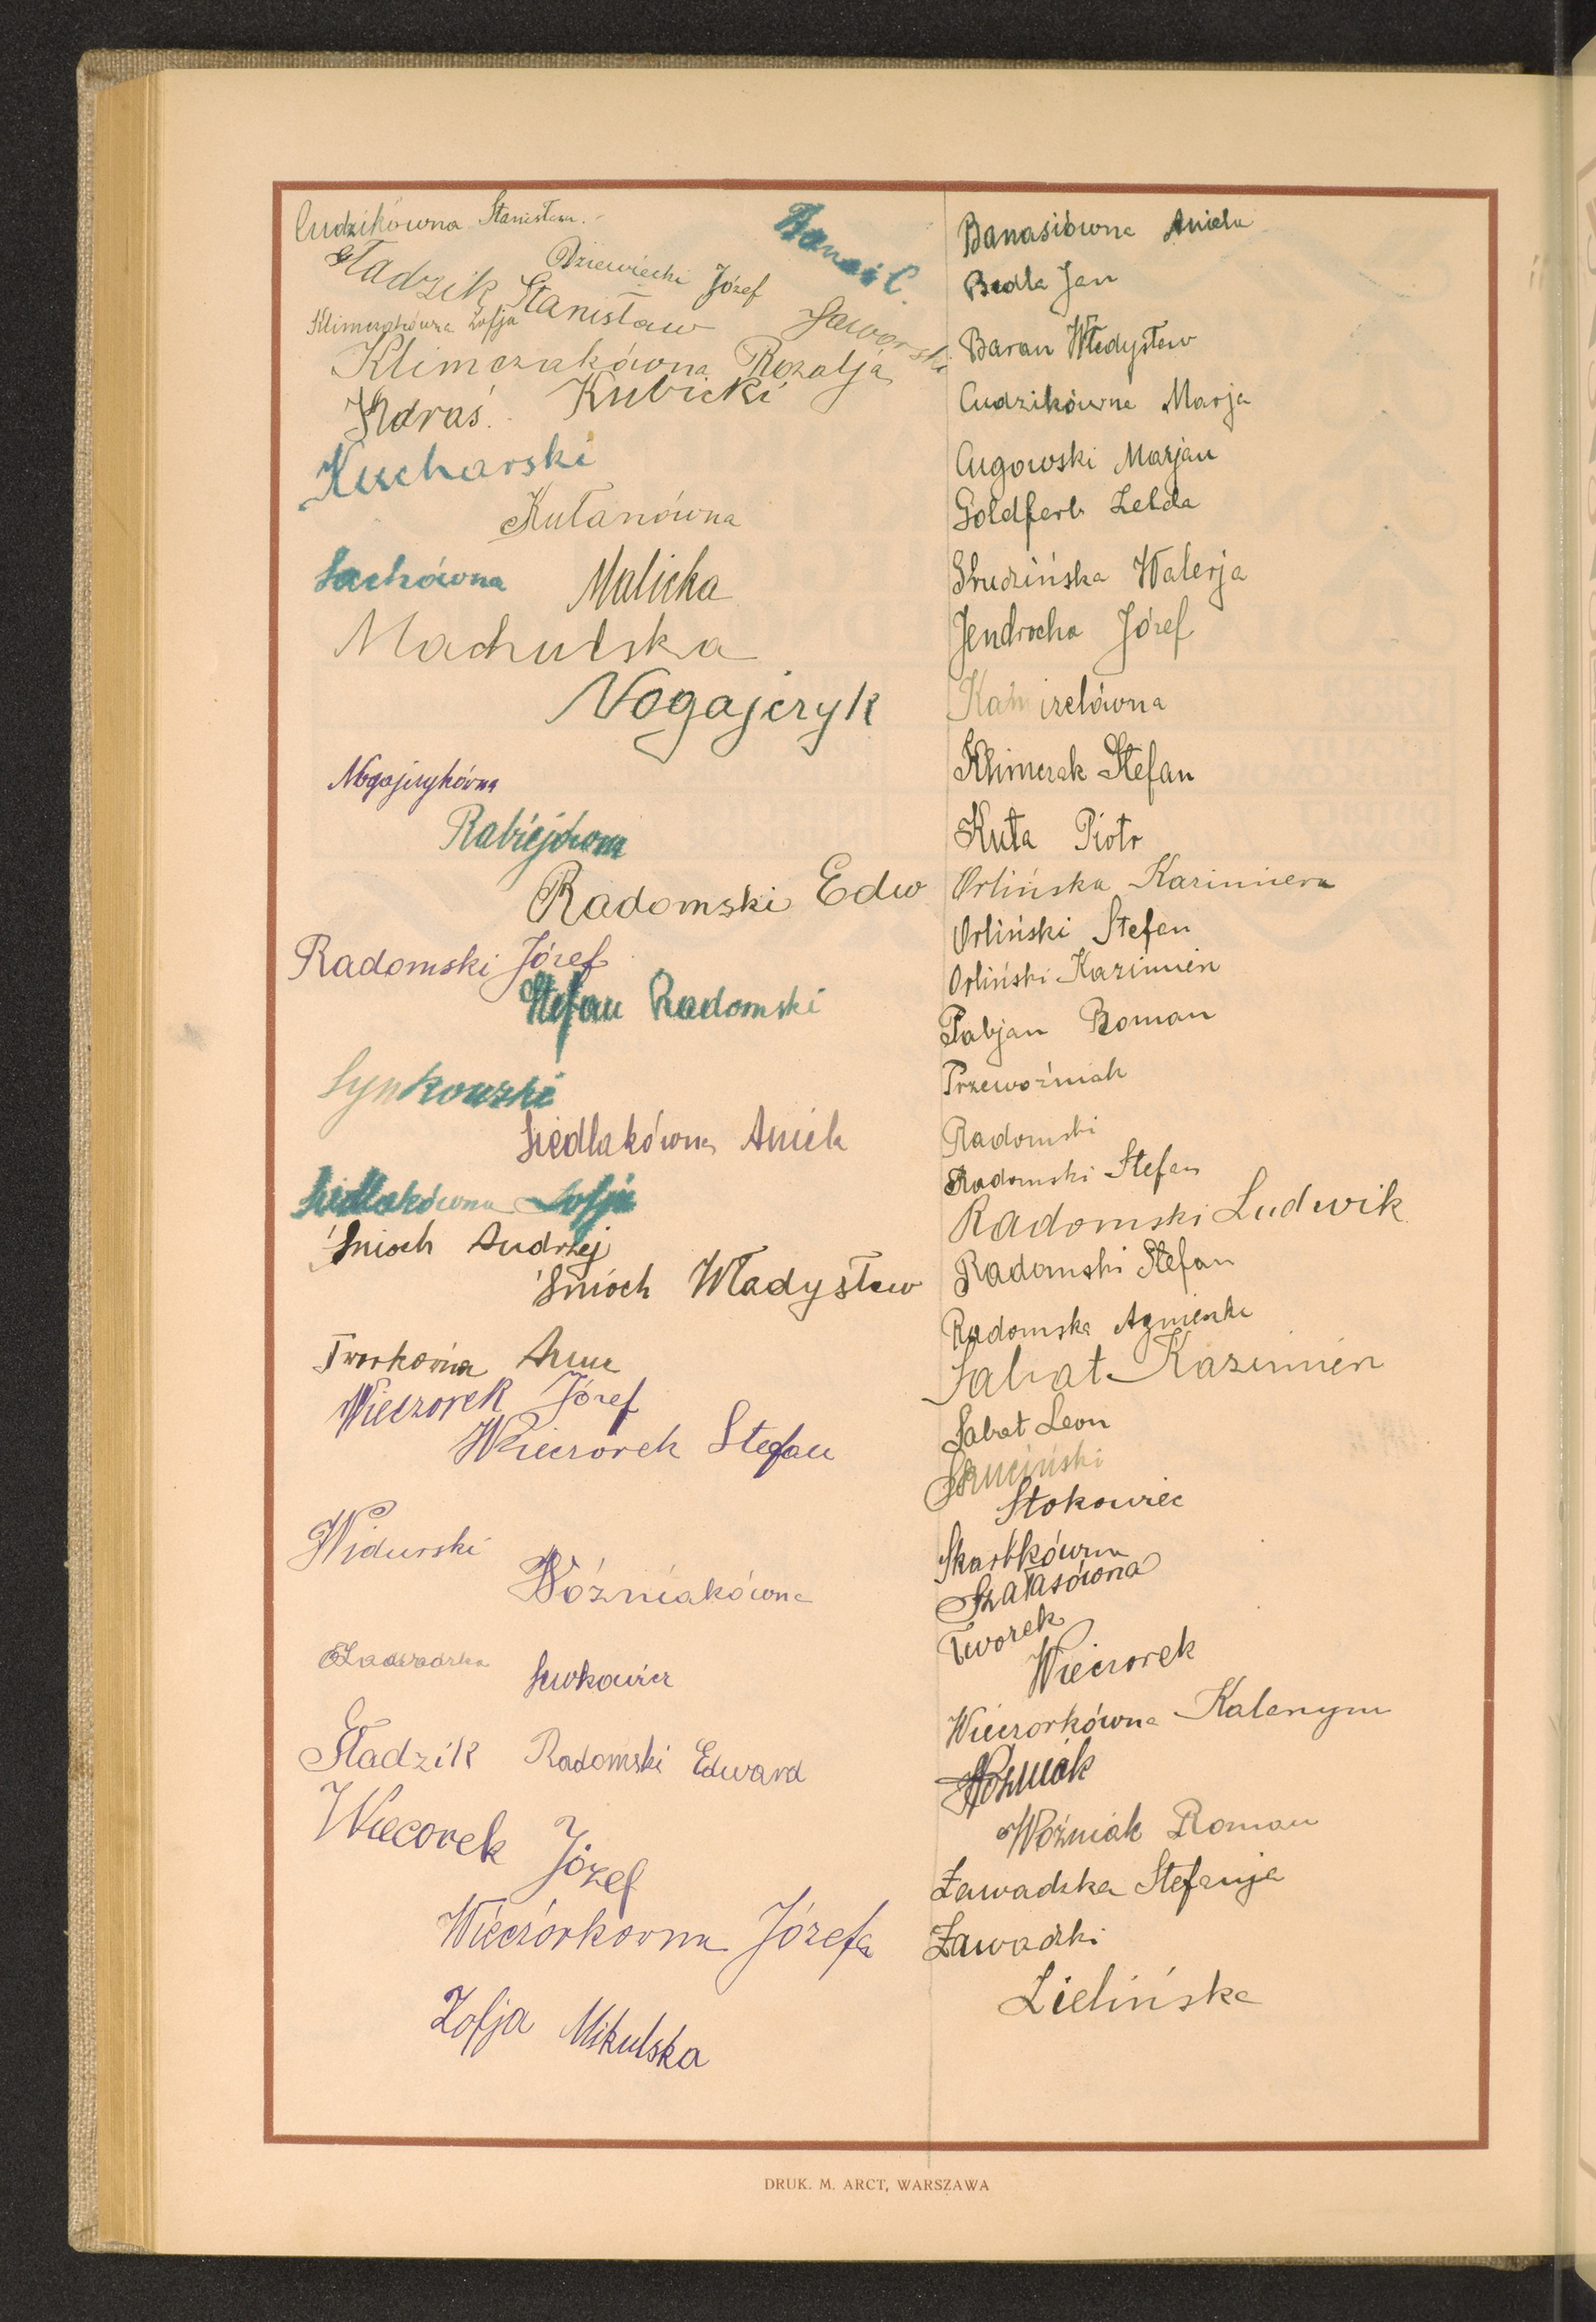 Cudzikówna Stanisława
Banaś C.
Dziewiecki Józef
Gładzik Stanisław
Jaworski
Klimczakówna Zofja
Klimczakówna Rozalja
Kdraś. Kubicki
Kucharski
Kułanówna
Lachówna Malicka
Machulska
Nogajczyk
Nogajczykówna
Rabiejówna
Radomski Edw
Radomski Józef
Stefan Radomski
Synkowski
Siedlakówna Aniela
Siedlakówna Zofja
Śnioch Andrzej
Śnioch Władysław
Tworkówna Anna
Wieczorek Józef
Wieczorek Stefan
Widurski
Wóźniakówna
Zawadzka
Gładzik Radomski Edward
Wiecorek Józef
Wieczórkowna Józefa
Zofja Mikulska
Banasiówna Aniela
Bedla Jan
Baran Władysław
Cudzikówna Marja
Cugowski Marjan
Goldferb Zelda
Grudzińska Walerja
Jendrocha Józef
Kamizelówna
Klimczak Stefan
Kuta Piotr
Orlińska Kazimiera
Orliński Stefan
Orliński Kazimierz
Pabjan Roman
Przewoźniak
Radomski
Radomski Stefan
Radomski Ludwik
Radomski Stefan
Radomska Agnieszka
Sabat Kazimierz
Sabat Leon
Stokowiec
Skarbkówna
Szałasówna
Tworek
Wieczorek
Wieczorkówna Katarzyna
Woźniak
Woźniak Roman
Zawadzka Stefanja
Zawadzki
Zielińska
DRUK. M. ARCT, WARSZAWA